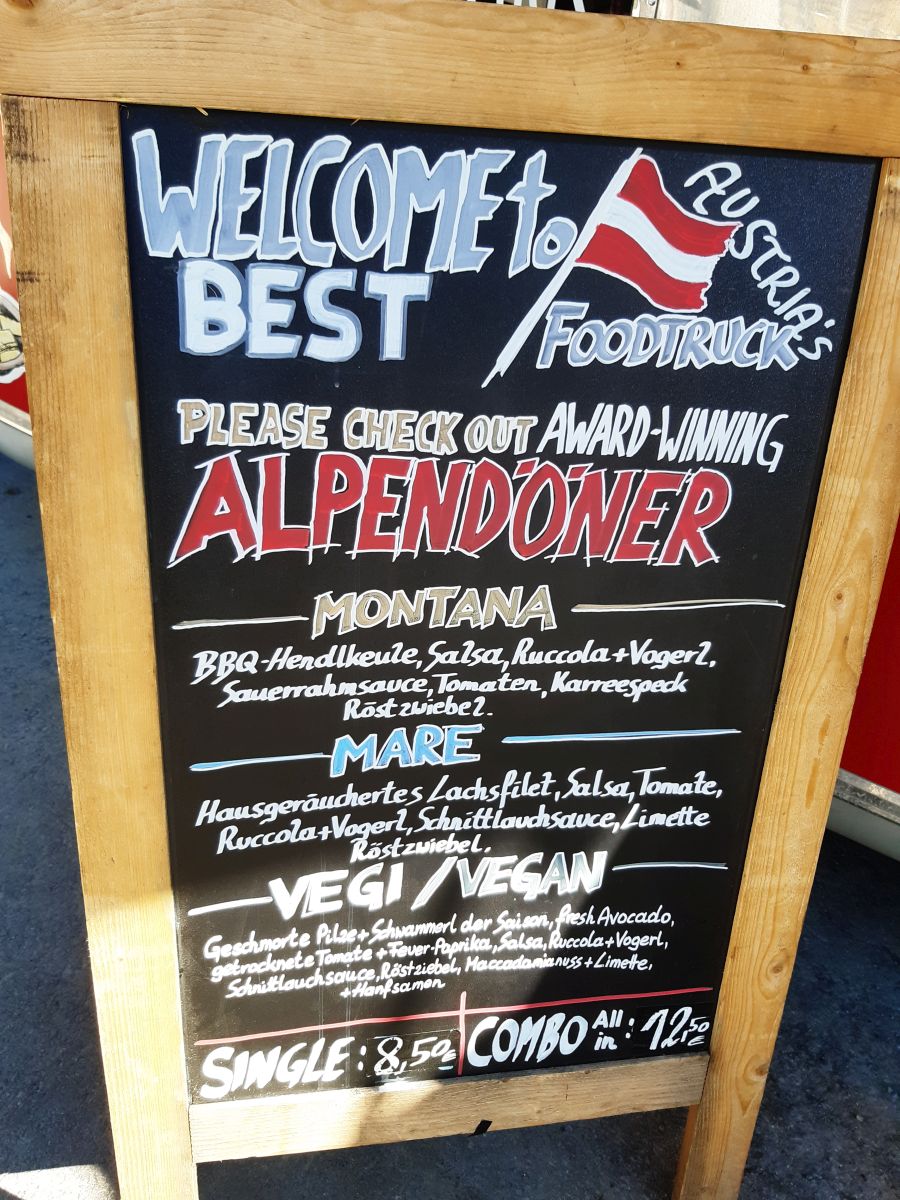 WELCOME to
BEST
AUSTRIA'S
FOODTRUCK
PLEASE CHECK OUT AWARD-WINNING
ALPENDÖNER
MONTANA
BBQ-Hendlkeule, Salsa, Ruccola + Vogerl,
Sauerrahmsauce, Tomaten, Karreespeck
Röstzwiebel.
MARE
Hausgeräuchertes Lachsfilet, Salsa, Tomate,
Ruccola + Vogerl, Schnittlauchsauce, Limette
Röstzwiebel.
VEGI / VEGAN
Geschmorte Pilze + Schwammerl der Saison, fresh Avocado,
getrocknete Tomate + Feuer-Paprika, Salsa, Ruccola + Vogerl,
Schnittlauchsauce, Röstziebel, Maccadamianuss + Limette,
+ Hanfsamen
SINGLE: 8,50€
COMBO All in: 12,50 €